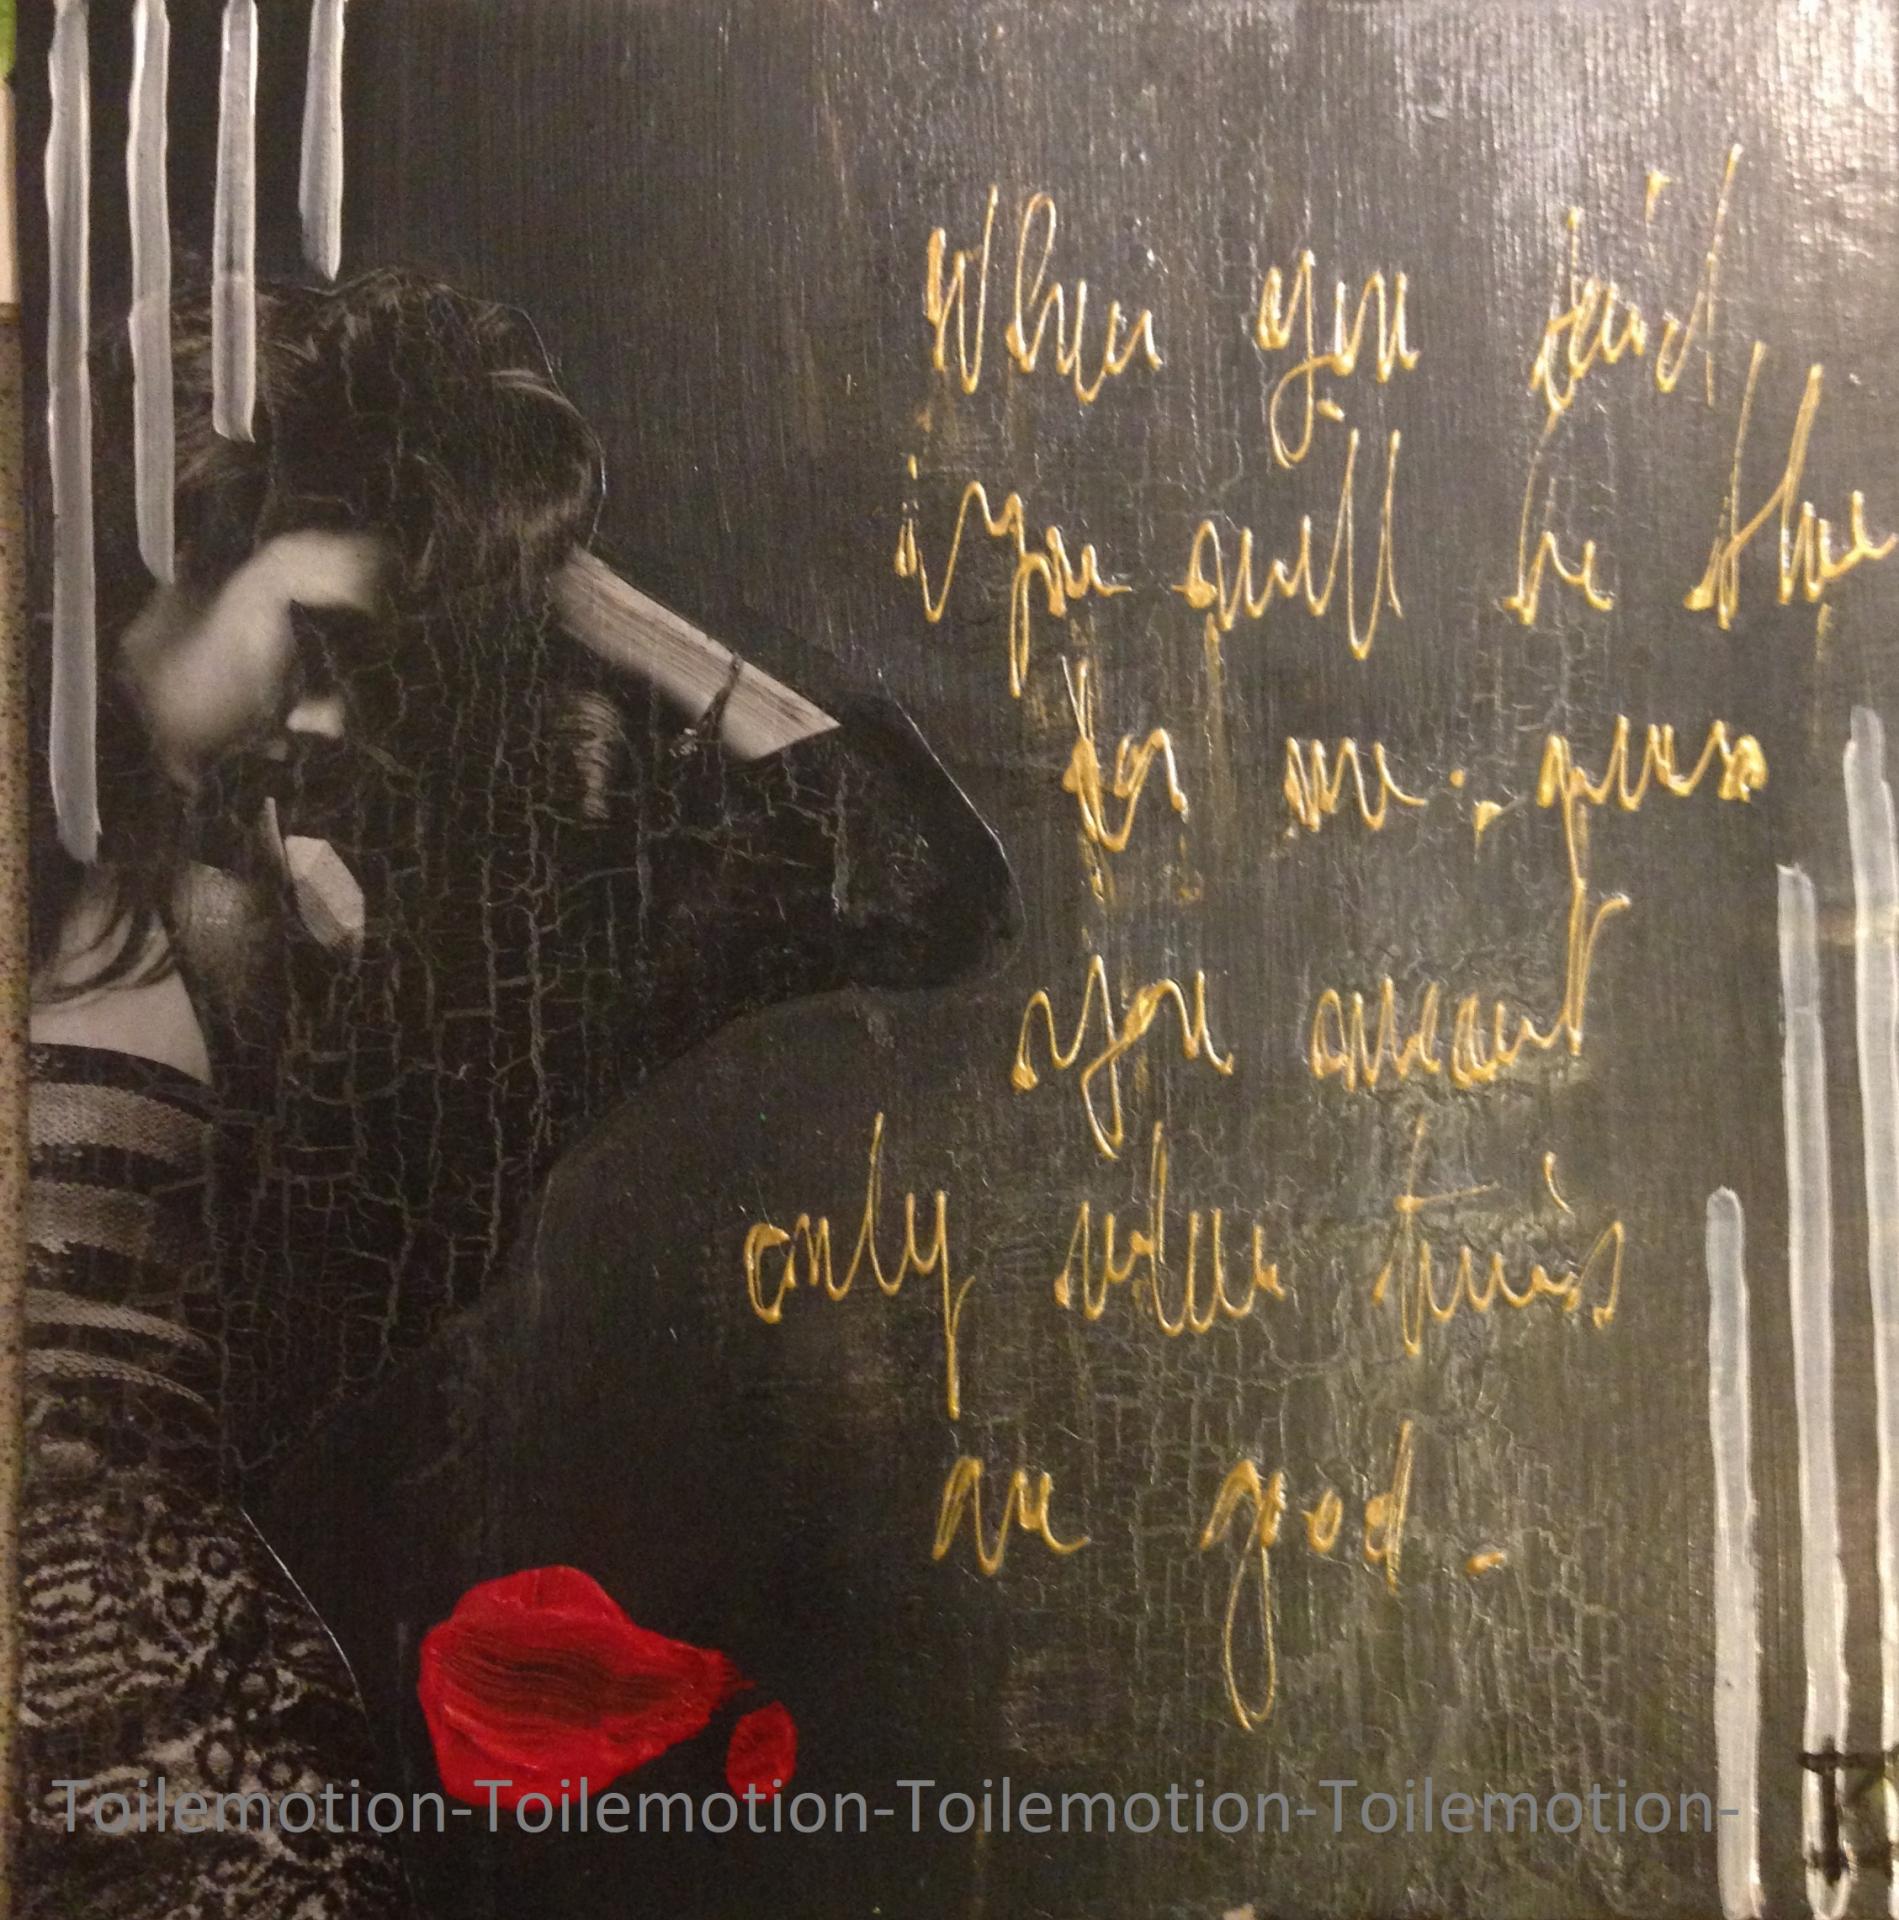 When you said,
"you will be there
for me", guess
you meant
only when times
are good.
Toilemotion-Toilemotion-Toilemotion-Toilemotion-